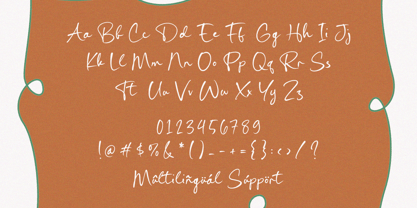 Aa Bb Cc Dd Ee Ff Gg Hh Ii Jj
Kk Ll Mm Nn Oo Pp Qq Rr Ss
Tt Uu Vv Ww Xx Yy Zz
0123456789
!@#$%&*()_-+={}:<>/?
Múltilingüál Súppört